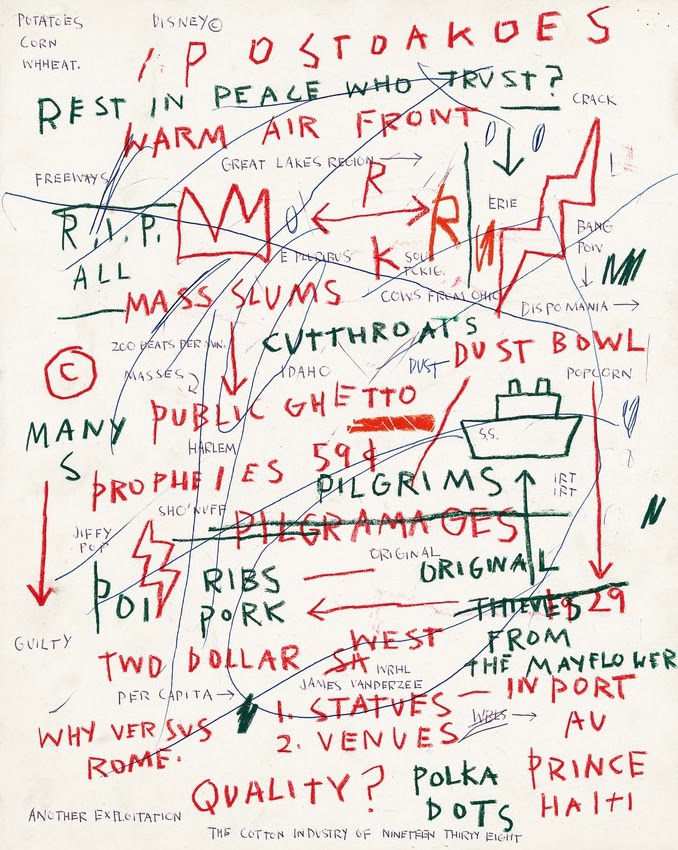 POTATOES
CORN
WHHEAT.
DISNEY©
IPOSTOAKOES
REST IN PEACE WHO TRUST?
CRACK
WARM AIR FRONT
GREAT LAKES REGION
FREEWAYS
R
R
ERIE
R.I.P.
BANG
POW
E PLURIBUS
K
ALL
COWS FROM OHIO
DISPOMANIA
MASS SLUMS
CUTTHROATS
DUST BOWL
200 BEATS PER MIN.
©
MASSES
IDAHO
DUST
POPCORN
PUBLIC GHETTO
MANY
S
S.S.
HARLEM
59¢
PROPHEIES
PILGRIMS
IRT
IRT
SHO'NUFF
PILGRAMAGES
JIFFY
POP
ORIGINAL
ORIGINAL
POI
RIBS
PORK
THIEVES
29
GUILTY
WEST
FROM
TWO DOLLAR
SA
WRHL
THE MAYFLOWER
JAMES VANDERZEE
PER CAPITA
1. STATUES — IN PORT
WHY VERSVS
2. VENUES
AU
ROME.
PRINCE
QUALITY?
POLKA
DOTS
HAITI
ANOTHER EXPLOITATION
THE COTTON INDUSTRY OF NINETEEN THIRTY EIGHT